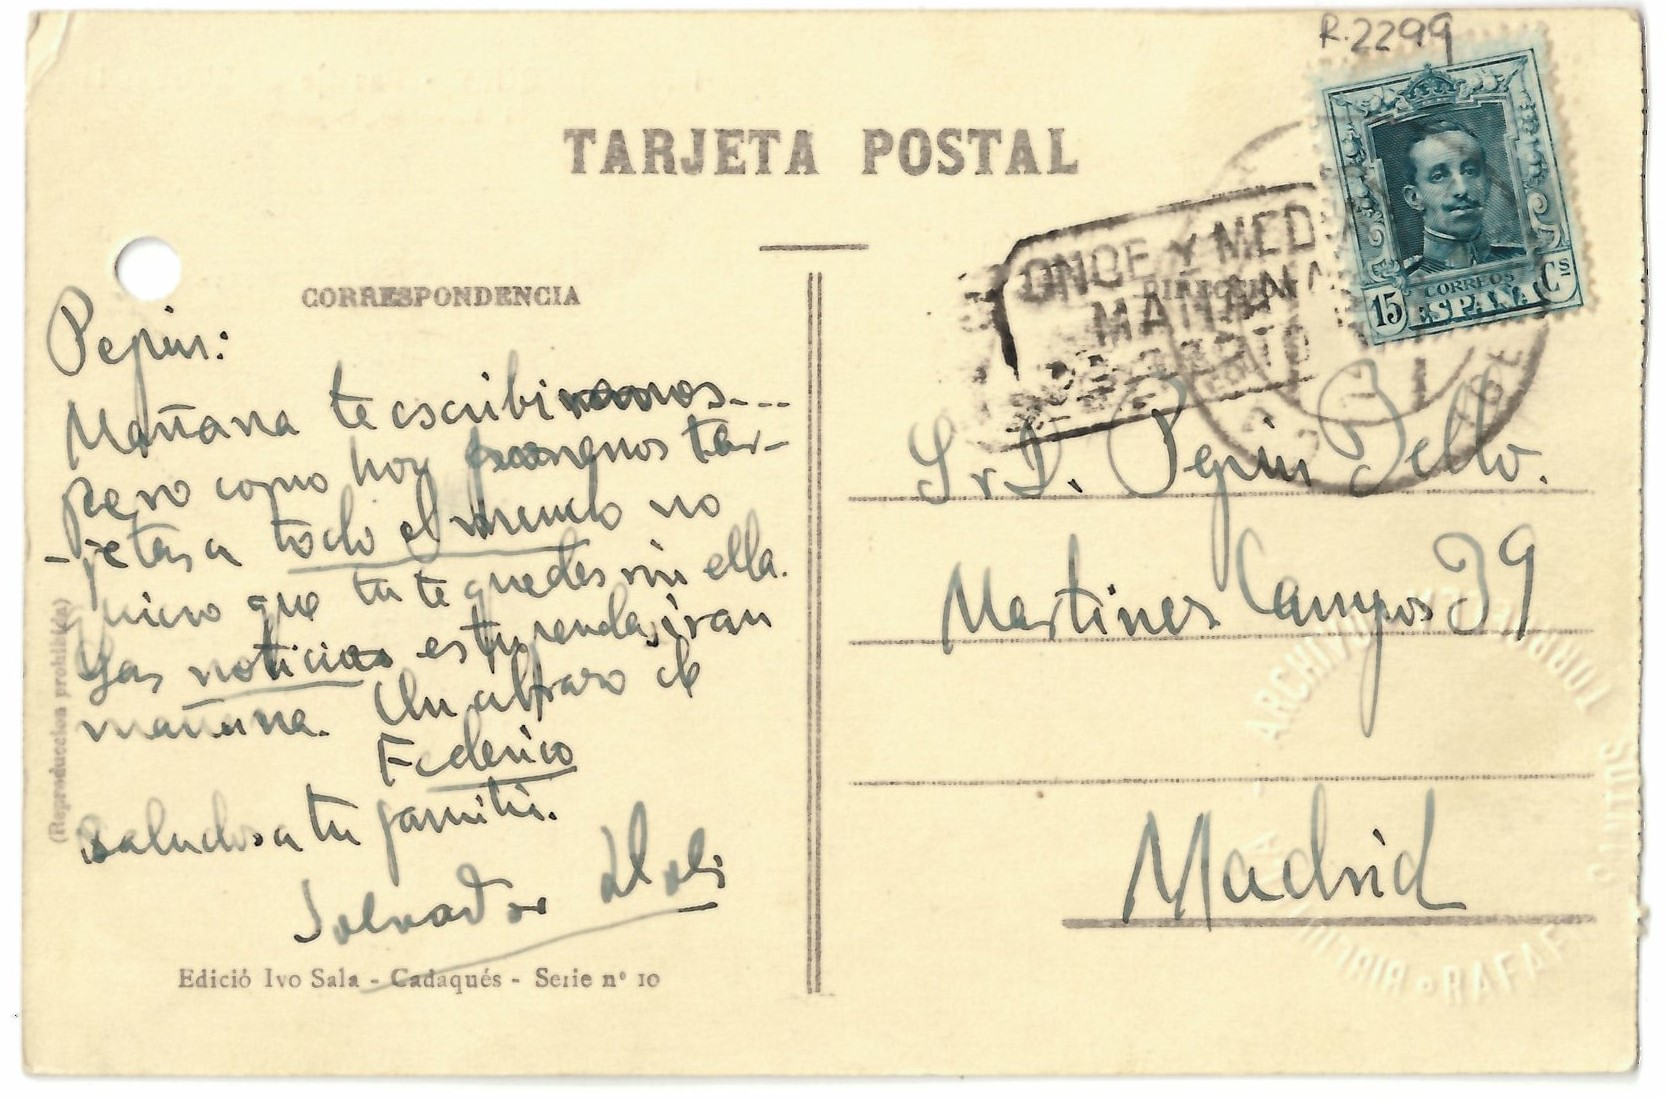 R.2299
TARJETA POSTAL
CORREOS
15 ESPAÑA Cs
ONCE Y MEDIA
MAÑANA
CORRESPONDENCIA
Pepin:
Mañana te escribiremos...
pero como hoy ponemos tar-
-jetas a todo el mundo no
quiero que tu te quedes sin ella.
Las noticias estupendas iran
mañana. Un abrazo de
Federico
Saludos a tu familia.
Salvador Dali
Edició Ivo Sala - Cadaqués - Serie nº 10
(Reproduccion prohibida)
Sr D. Pepin Bello.
Martines Campos 39
Madrid
ARCHIVO
TORROELLA
SANTOS
RAFAEL